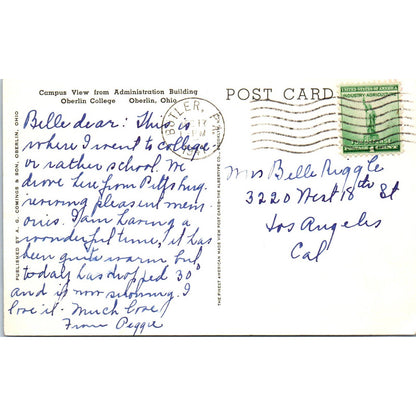 Campus View from Administration Building
Oberlin College Oberlin, Ohio
Belle dear: This is
where I went to college
or rather school. We
drove here from Pittsburg.
reviving pleasant mem-
ories. I am having a
wonderful time, it has
been quite warm but
today has dropped 30°
and is now storming. I
love it. Much love
From Peggie
PUBLISHED BY A. G. COMINGS & SON, OBERLIN, OHIO
THE FINEST AMERICAN MADE VIEW POST CARDS—THE ALBERTYPE CO.,
POST CARD
BUTLER, PA.
UNITED STATES OF AMERICA
INDUSTRY AGRICULTURE
Belle Riggle
3220 West 18th St
Los Angeles
Cal